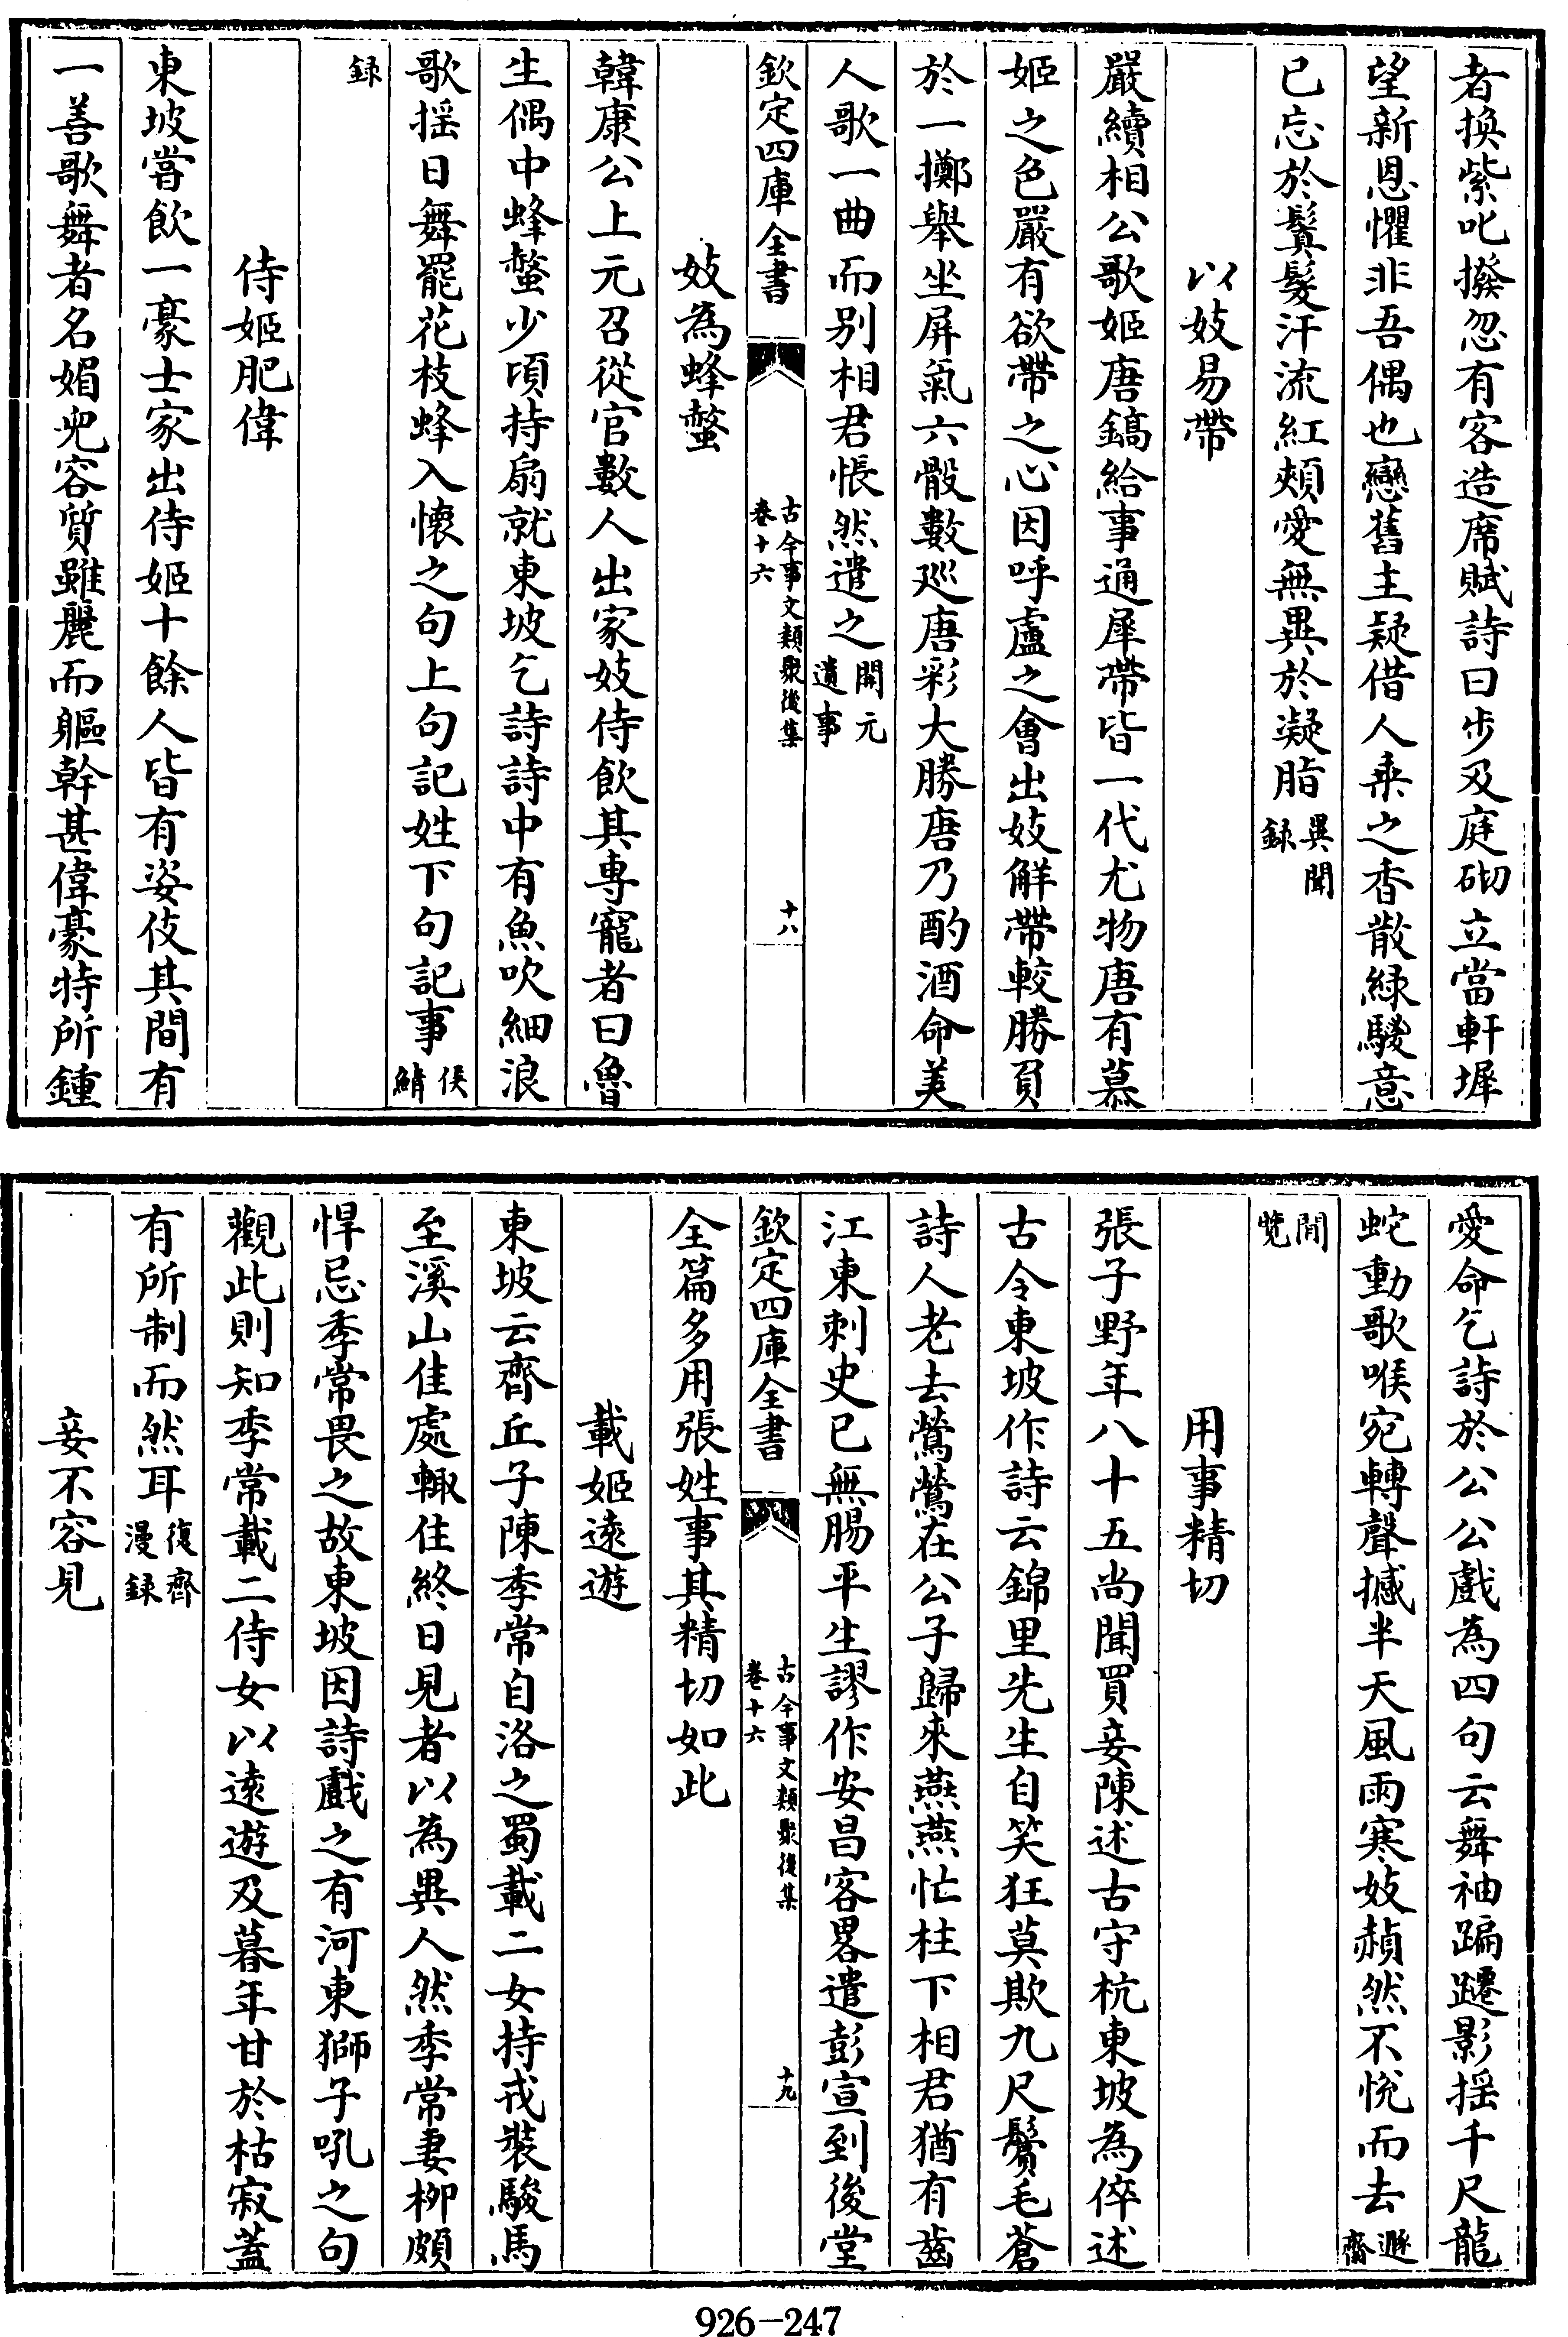 者換紫叱撥忽有客造席賦詩曰步及庭砌立當軒墀
望新恩懼非吾偶也戀舊主疑借人乘之香散緑騣意
已忘於鬒髮汗流紅頰愛無異於凝脂異聞録
以妓易帶
嚴續相公歌姬唐鎬給事通犀帶皆一代尤物唐有慕
姬之色嚴有欲帶之心因呼盧之會出妓解帶較勝負
於一擲舉坐屏氣六骰數廵唐彩大勝唐乃酌酒命美
人歌一曲而别相君悵然遣之開元遺事
欽定四庫全書 古今事文類聚後集 卷十六 十八
妓為蜂螫
韓康公上元召從官數人出家妓侍飲其專寵者曰魯
生偶中蜂螫少頃持扇就東坡乞詩詩中有魚吹細浪
歌揺日舞罷花枝蜂入懷之句上句記姓下句記事侯鯖
録
侍姬肥偉
東坡嘗飲一豪士家出侍姬十餘人皆有姿伎其間有
一善歌舞者名媚兒容質雖麗而軀幹甚偉豪特所鍾
愛命乞詩於公公戲為四句云舞袖蹁躚影揺千尺龍
蛇動歌喉宛轉聲撼半天風雨寒妓頳然不恱而去遯齋
閒覽
用事精切
張子野年八十五尚聞買妾陳述古守杭東坡為倅述
古令東坡作詩云錦里先生自笑狂莫欺九尺鬢毛蒼
詩人老去鶯鶯在公子歸來燕燕忙柱下相君猶有齒
江東刺史已無腸平生謬作安昌客畧遣彭宣到後堂
欽定四庫全書 古今事文類聚後集 卷十六 十九
全篇多用張姓事其精切如此
載姬逺遊
東坡云齊丘子陳季常自洛之蜀載二女持戎裝駿馬
至溪山佳處輙住終日見者以為異人然季常妻柳頗
悍忌季常畏之故東坡因詩戲之有河東獅子吼之句
觀此則知季常載二侍女以逺遊及暮年甘於枯寂蓋
有所制而然耳復齊漫録
妾不容見
926-247